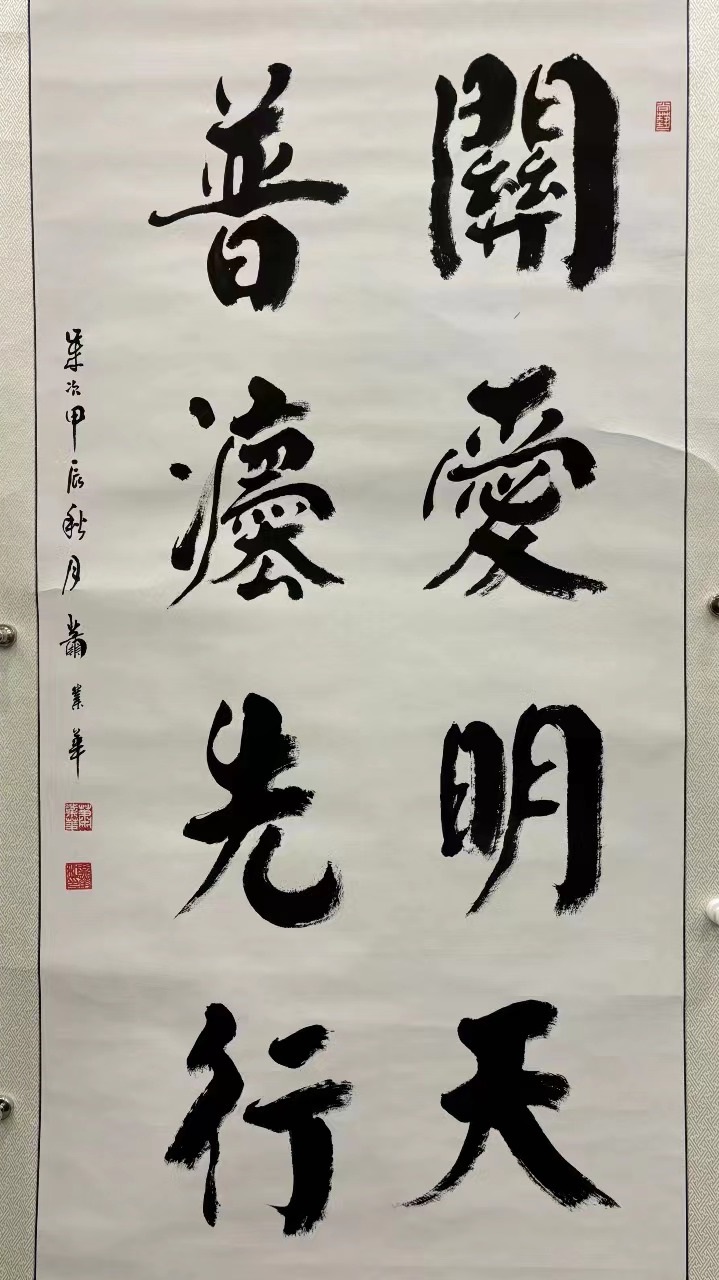 關愛明天
普灋先行
歲次甲辰秋月 蕭業華